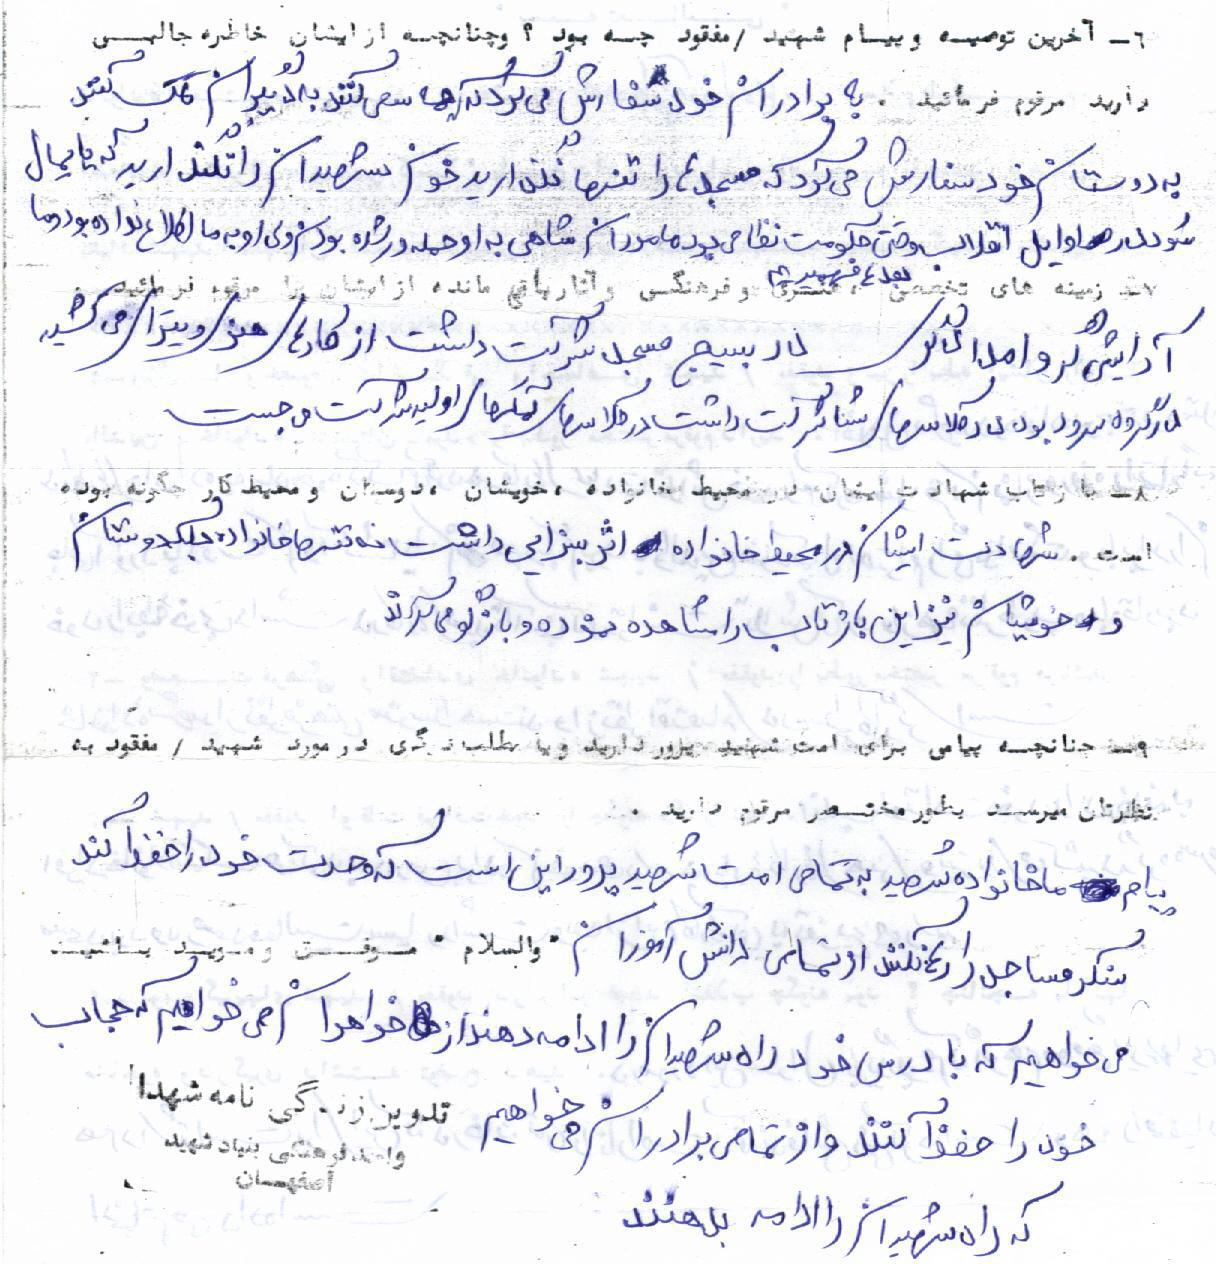 ۶ــ آخرین توصیه و پیام شهید /مفقود چه بود ؟ وچنانچه از ایشان خاطره جالبی
دارید مرقوم فرمائید . به برادران خود سفارش می کرد که سعی کنند به دیگران کمک کنند
به دوستان خود سفارش می کرد که مسجدها را تنها نگذارید خون شهیدان را نگذارید که پایمال
شود در اوایل انقلاب وقتی حکومت نظامی بود ماموران شاهی به او حمله ور شده بودند ولی او به ما اطلاع نداده بود و ما
بعدها فهمیدیم
۷ــ زمینه های تخصصی ، هنری و فرهنگی و آثار باقی مانده از ایشان را مرقوم فرمائید
در بسیج مسجد شرکت داشت از کارهای هنری ویترای می کشید
در گروه سرود بود در کلاسهای شنا شرکت داشت در کلاسهای کمکهای اولیه شرکت می جست
۸ــ بازتاب شهادت ایشان در محیط خانواده ، خویشان ، دوستان و محیط کار چگونه بوده
است . شهادت ایشان در محیط خانواده اثر بسزایی داشت نه تنها خانواده بلکه دوستان
و خویشان نیز این بازتاب را مشاهده نموده و بازگو می کردند
۹ــ چنانچه پیامی برای امت شهید پرور دارید و یا مطلب دیگری در مورد شهید / مفقود به
نظرتان میرسد بطور مختصر مرقوم دارید .
پیام ما خانواده شهید به تمامی امت شهید پرور این است که وحدت خود را حفظ کنند
سنگر مساجد را ترک نکنند از تمامی دانش آموزان "والسلام " موفق و موید باشید
می خواهیم که با درس خود راه شهیدان را ادامه دهند از خواهران می خواهیم که حجاب
خود را حفظ کنند و از تمامی برادران می خواهیم
که راه شهیدان را ادامه بدهند
تدوین زندگی نامه شهدا
واحد فرهنگی بنیاد شهید
اصفهان